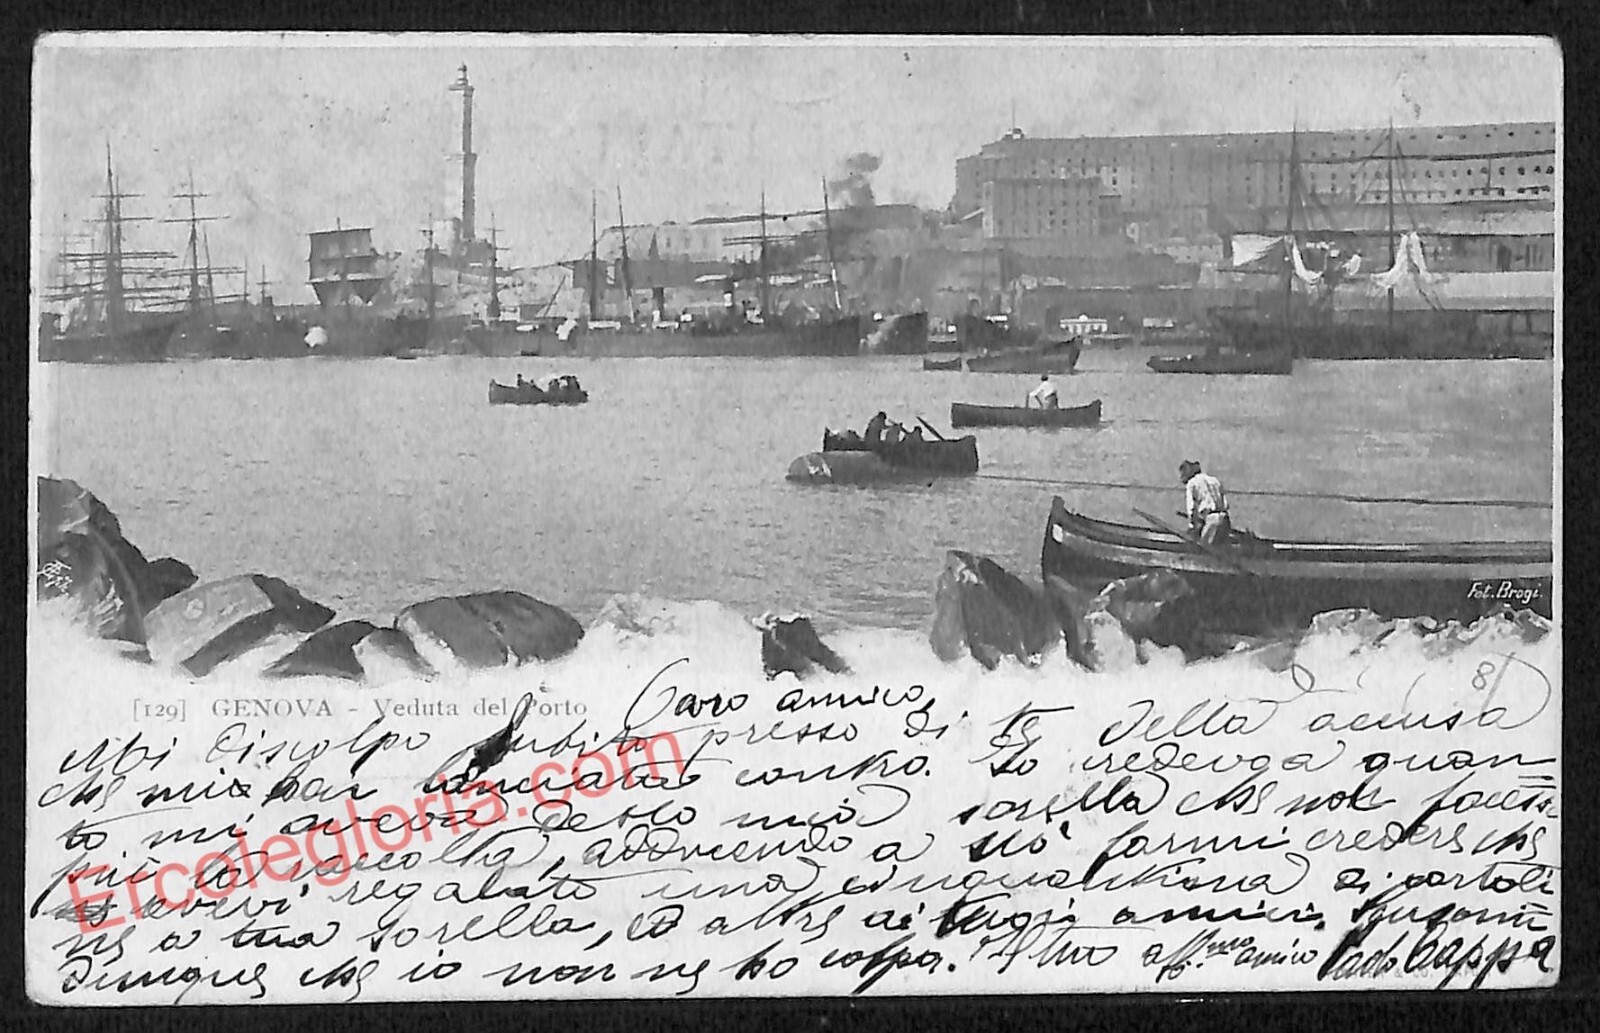 Fot. Brogi.
8
[129] GENOVA - Veduta del Porto
Caro amico,
Mi discolpo subito presso di te della accusa
che mi hai lanciata contro. Io credevo quan-
to mi aveva detto mia sorella che non facessi
più la raccolta, adducendo a ciò farmi credere che
avevi regalato una cinquantina di cartoli
ne a tua sorella, ed altre ai tuoi amici.
dunque che io non ne ho colpa. Il tuo aff.mo amico Cappa
Ercolegloria.com